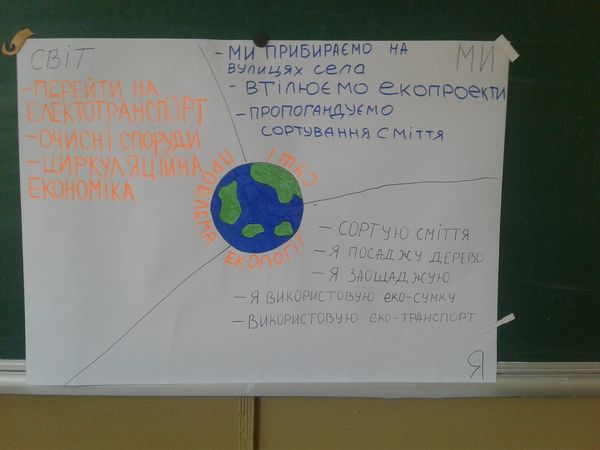 СВІТ
-ПЕРЕЙТИ НА
ЕЛЕКТОТРАНСПОРТ
-ОЧИСНІ СПОРУДИ
-ЦИРКУЛЯЦІЙНА
ЕКОНОМІКА
МИ
- МИ ПРИБИРАЄМО НА
ВУЛИЦЯХ СЕЛА
- ВТІЛЮЄМО ЕКОПРОЕКТИ
- ПРОПОГАНДУЄМО
СОРТУВАННЯ СМІТТЯ
ПРОБЛЕМА ЕКОЛОГІЇ
СУШІ
- СОРТУЮ СМІТТЯ
- Я ПОСАДЖУ ДЕРЕВО
- Я ЗАОЩАДЖУЮ
- Я ВИКОРИСТОВУЮ ЕКО-СУМКУ
- ВИКОРИСТОВУЮ ЕКО-ТРАНСПОРТ
Я